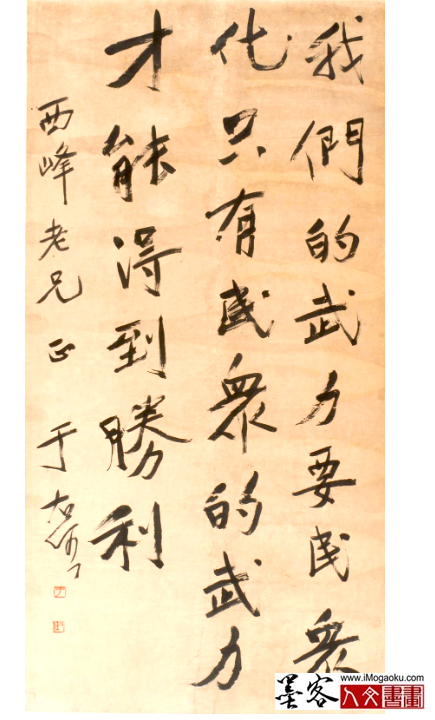 我們的武力要民衆
化只有民衆的武力
才能得到勝利
西峰老兄正 于右任
www.iMogaoku.com
墨客
人文書畫